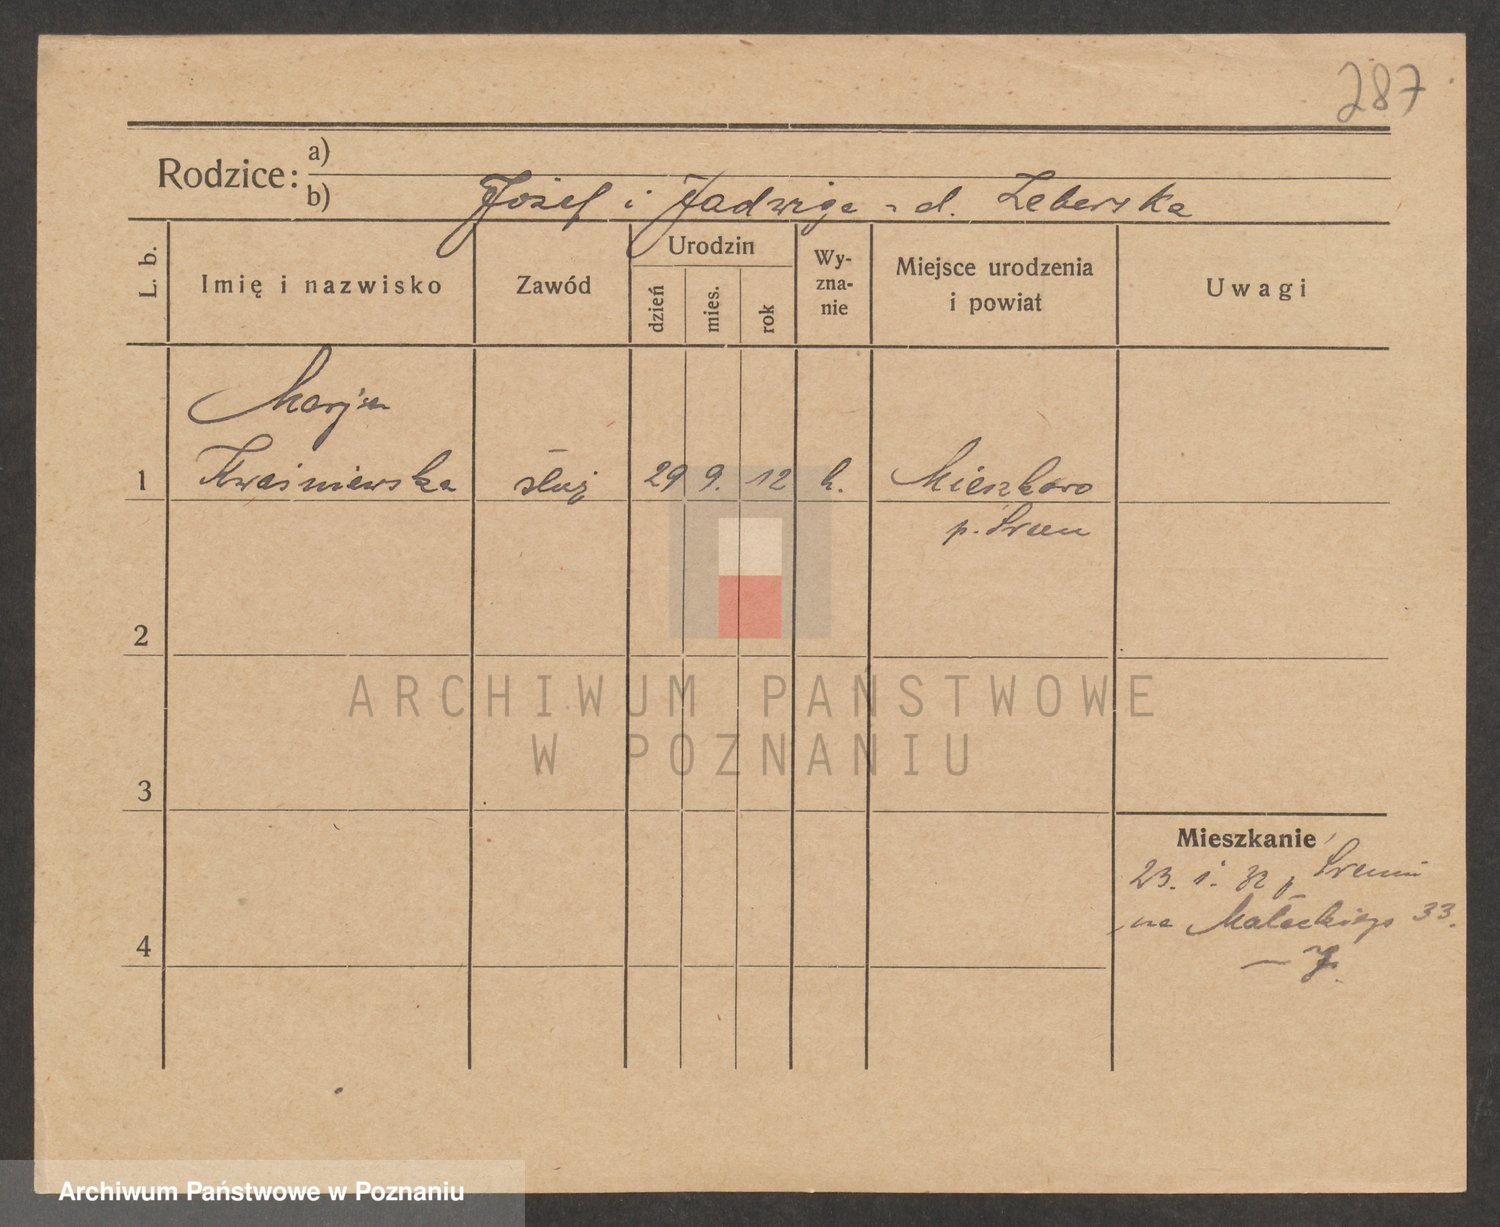 287
Rodzice: a)
b) Józef i Jadwiga - d. Zeberska
L. b.
Imię i nazwisko
Zawód
Urodzin
dzień
mies.
rok
Wy-
zna-
nie
Miejsce urodzenia
i powiat
Uwagi
Marja
1 Kwaśniewska służ 29 9. 12 k. Mieszkowo
p. Śrem
2
ARCHIWUM PAŃSTWOWE
W POZNANIU
3
Mieszkanie
23. 1. 32 Śremu
na Małeckiego 33.
4
Archiwum Państwowe w Poznaniu